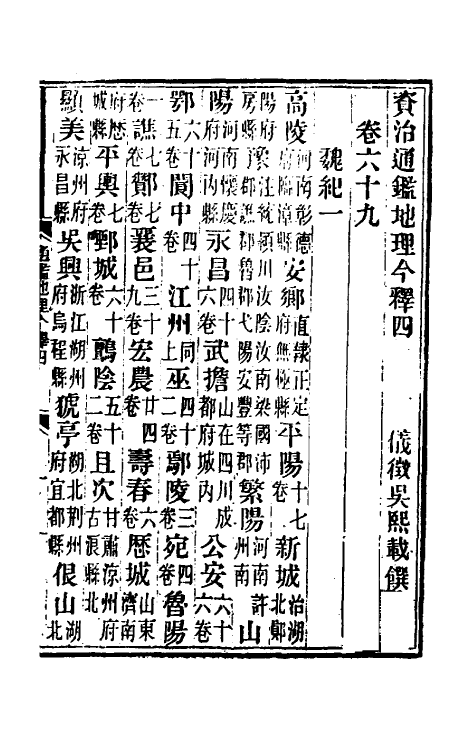 資治通鑑地理今釋四　儀徵吳熙載譔
卷六十九
魏紀一
高陵河南彰德府臨漳縣安鄉直隸正定府無極縣平陽十七卷新城治湖北鄖
陽府房縣豫注統潁川汝陰汝南梁國沛郡譙郡魯郡弋陽安豐等郡繁陽河南許州南山
陽河南懷慶府河內縣永昌四十六卷武擔山在四川成都府城內公安六十六卷
鄂六十五卷閬中四十卷江州同上巫四十二卷鄢陵三卷宛四卷魯陽
一卷譙七卷酇七卷襄邑三十九卷宏農廿四卷壽春六卷歷城山東濟南
府歷城縣平輿七卷鄄城六十卷鸇陰五十二卷且次甘肅涼州府古浪縣北
顯美涼州府永昌縣吳興浙江湖州府烏程縣猇亭湖北荊州府宜都縣佷山湖北
通鑑地理今釋四